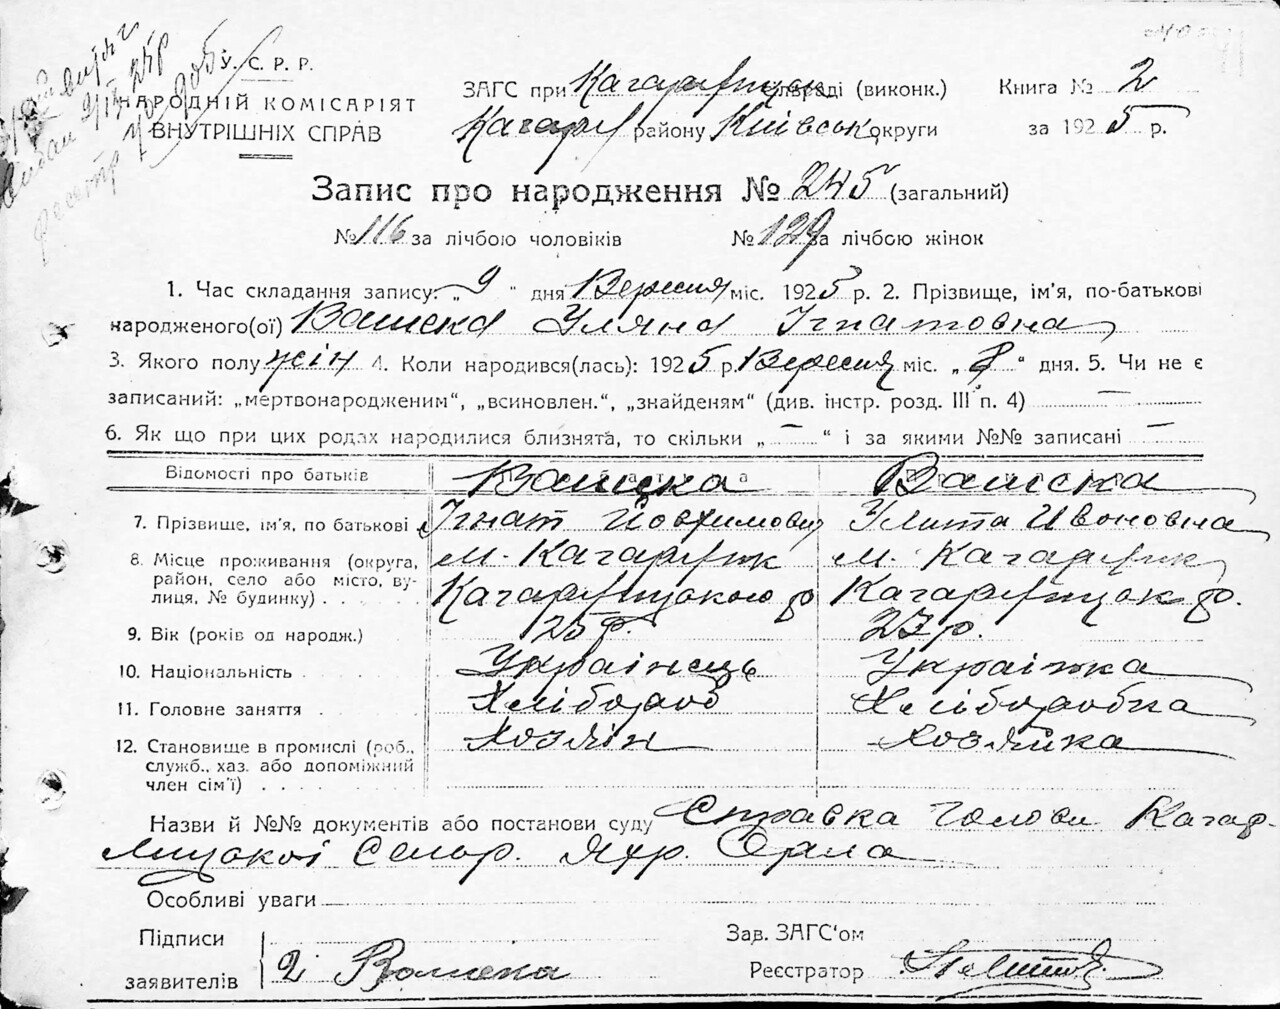 У. С. Р. Р.
НАРОДНІЙ КОМІСАРІЯТ
ВНУТРІШНІХ СПРАВ
ЗАГС при Кагарлицьк сільраді (виконк.) Книга № 2
Кагарл району Київськ округи за 1925 р.
Запис про народження № 245 (загальний)
№ 116 за лічбою чоловіків № 129 за лічбою жінок
1. Час складання запису: „ 9 “ дня Вересня міс. 1925 р. 2. Прізвище, ім'я, по-батькові
народженого(ої) Уляна Ігнатовна
3. Якого полу жін 4. Коли народився(лась): 1925 р. Вересня міс. „ 8 “ дня. 5. Чи не є
записаний: „мертвонародженим“, „всиновлен.“, „знайденям“ (див. інстр. розд. III п. 4) —
6. Як що при цих родах народилися близнята, то скільки „ — “ і за якими №№ записані —
Відомості про батьків
7. Прізвище, ім'я, по батькові Ігнат Улита Ивановна
8. Місце проживання (округа, м. Кагарлик м. Кагарлик
район, село або місто, ву-
лиця, № будинку) Кагарлицького р Кагарлицьк р.
9. Вік (років од народж.) 25 р. 27 р.
10. Національність Українець Українка
11. Головне заняття Хлібороб Хліборобка
12. Становище в промислі (роб., Хозяін Хозяйка
служб., хаз. або допоміжний
член сім'ї)
Назви й №№ документів або постанови суду Справка Голови Кагар-
лицької Сельр.
Особливі уваги
Підписи
заявителів 2
Зав. ЗАГС'ом
Реєстратор